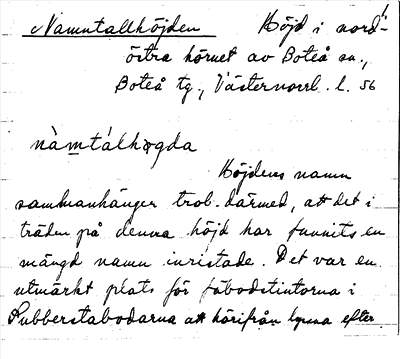 Namntallhöjden Höjd i nord-
östra hörnet av Boteå sn.,
Boteå tg., Västernorrl. l. 56
nàmtálhøgda
Höjdens namn
sammanhänger trol. därmed, att det i
träden på denna höjd har funnits en
mängd namn inristade. Det var en
utmärkt plats för fäbodstintorna i
Rubberstabodarna att härifrån lyssna efter